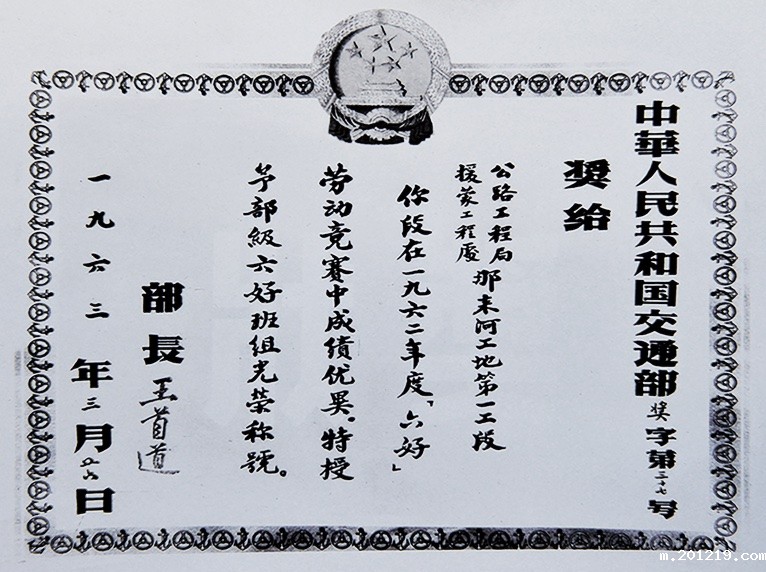 中華人民共和国交通部奖字第三十七号
奨给
公路工程局
援蒙工程處
那来河工地第一工段
你段在一九六二年度「六好」
劳动竞赛中成绩优異。特授
予部級六好班组光荣称號。
部長 王首道
一九六三年三月廿六日
m.201219.com